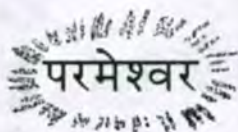 परमेश्वर